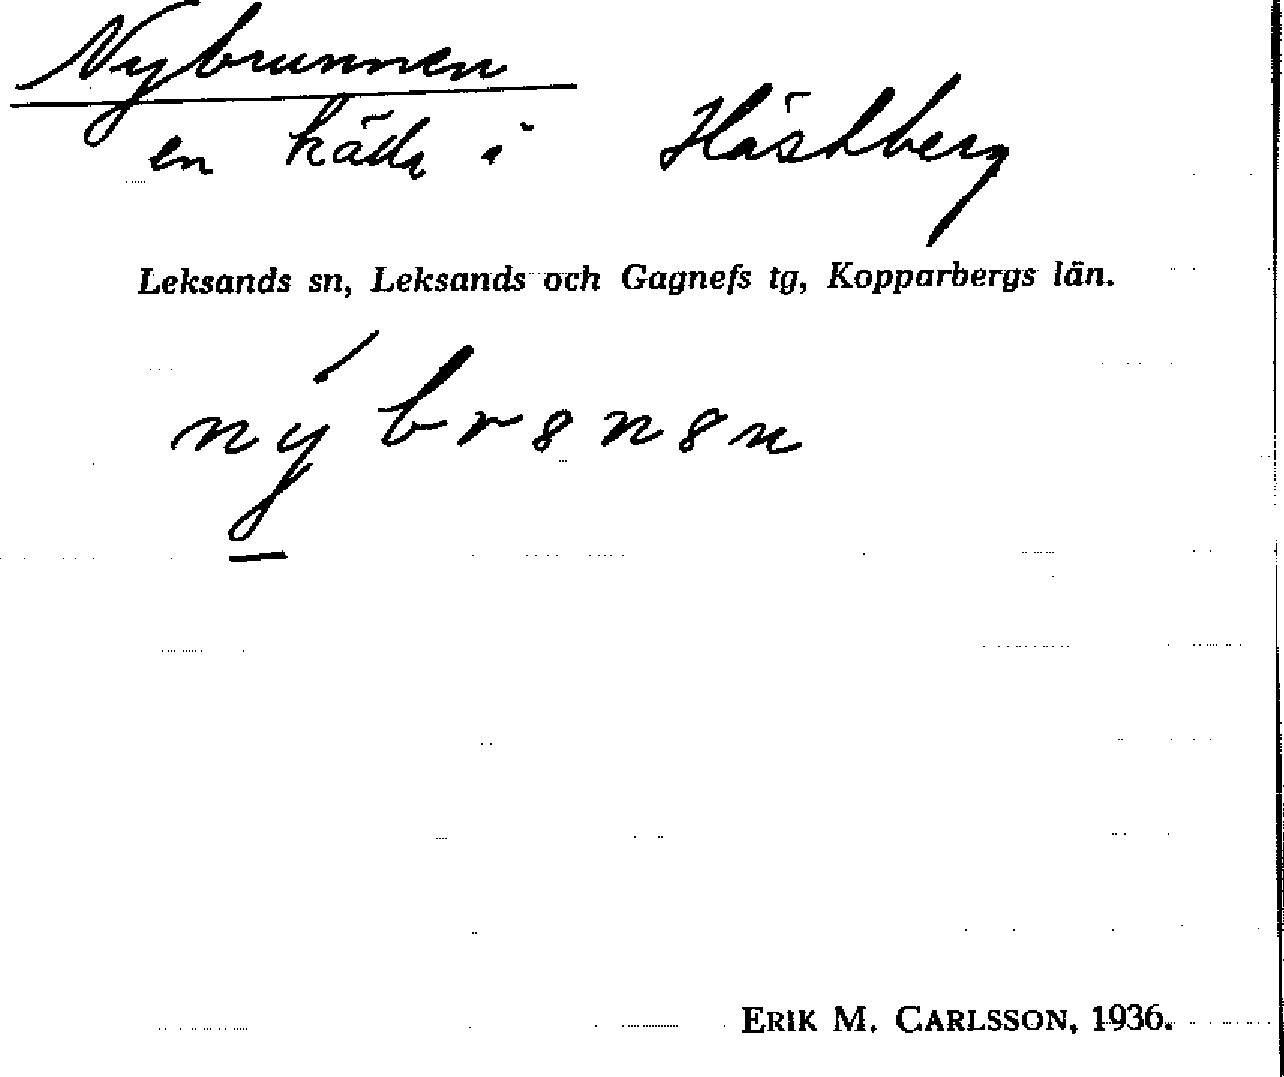 Nybrunnen
en källa i Hästberg
Leksands sn, Leksands och Gagnefs tg, Kopparbergs län.
ERIK M. CARLSSON, 1936.